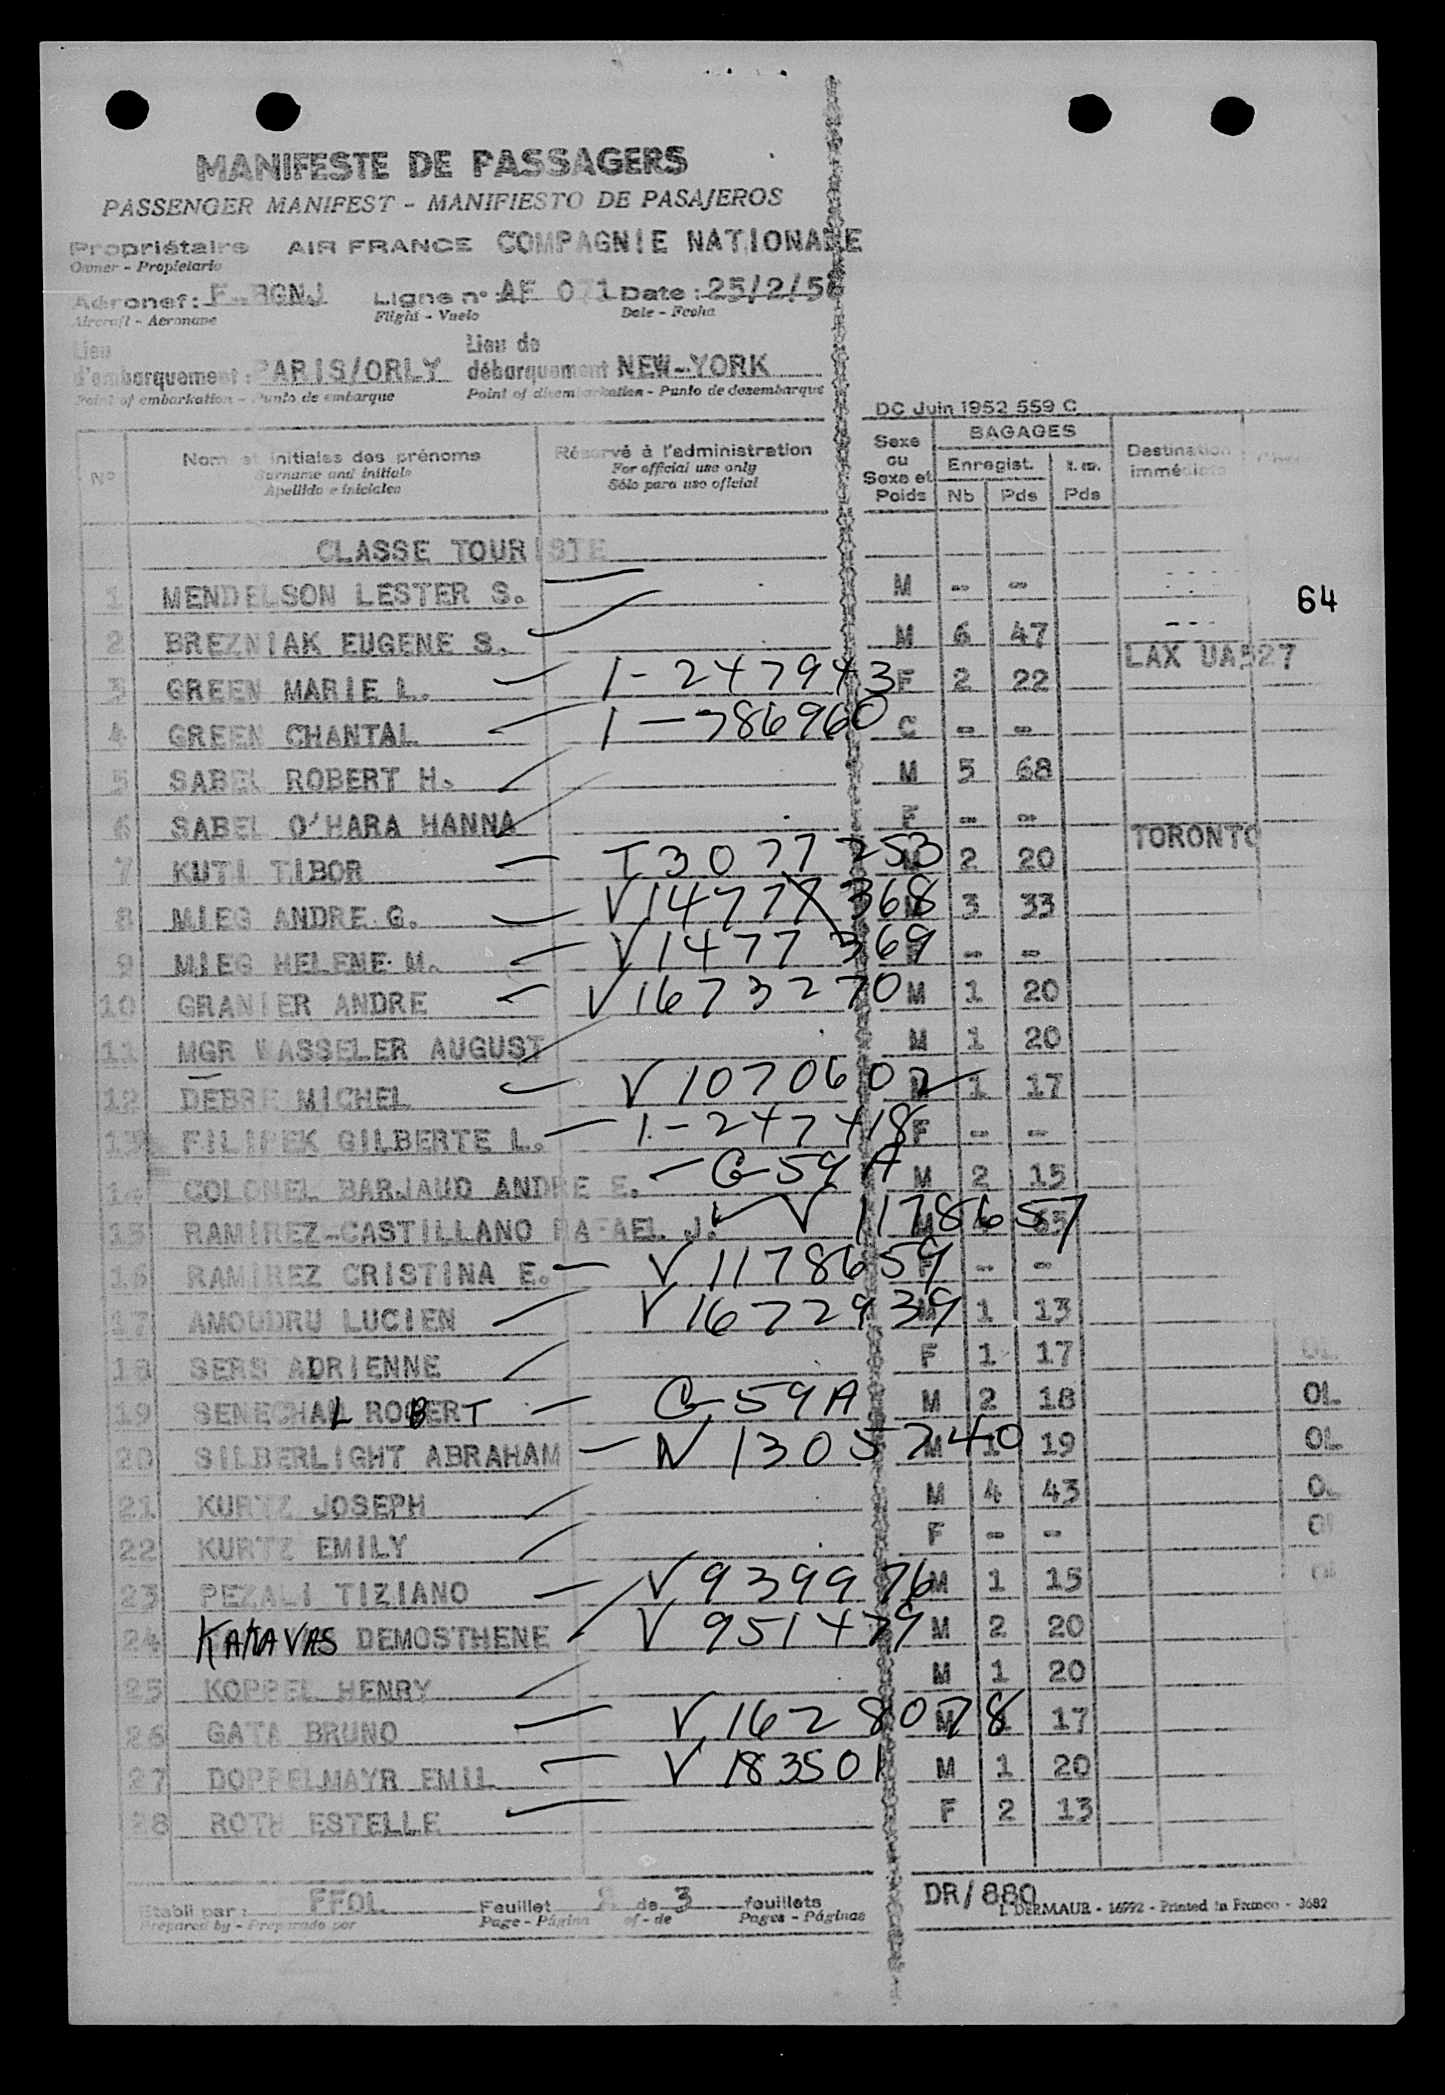 MANIFESTE DE PASSAGERS
PASSENGER MANIFEST - MANIFIESTO DE PASAJEROS
Propriétaire AIR FRANCE COMPAGNIE NATIONALE
Owner - Propietario
Aéronef: F-BGNJ Ligne n°: AF 071 Date: 25/2/56
Aircraft - Aeronave Flight - Vuelo Date - Fecha
Lieu d'embarquement: PARIS/ORLY Lieu de débarquement NEW-YORK
Point of embarkation - Punto de embarque Point of disembarkation - Punto de desembarque
DC Juin 1952 559 C
N° Nom et initiales des prénoms Réservé à l'administration Sexe ou Sexe et Poids BAGAGES Enregist. Nb Pds Pds Destination immédiate
Surname and initials For official use only
Apellido e iniciales Sólo para uso oficial
CLASSE TOURISTE
1 MENDELSON LESTER S. M -- --
64
2 BREZNIAK EUGENE S. M 6 47 ---
LAX UA527
3 GREEN MARIE L. 1-247943 F 2 22
4 GREEN CHANTAL 1-786960 C -- --
5 SABEL ROBERT H. M 5 68
6 SABEL O'HARA HANNA F -- --
TORONTO
7 KUTI TIBOR T3077253 M 2 20
8 MIEG ANDRE G. V1477 368 M 3 33
9 MIEG HELENE M. V1477369 F -- --
10 GRANIER ANDRE V1673270 M 1 20
11 MGR WASSELER AUGUST M 1 20
12 DEBRE MICHEL V1070602 M 1 17
13 FILIPEK GILBERTE L. 1-247418 F -- --
14 COLONEL BARJAUD ANDRE E. G-59A M 2 15
15 RAMIREZ-CASTILLANO RAFAEL J. V 1178657 M 65
16 RAMIREZ CRISTINA E. V 1178659 F -- --
17 AMOUDRU LUCIEN V1672939 M 1 13
18 SERS ADRIENNE F 1 17 OL
19 SENECHAL ROBERT G-59A M 2 18 OL
20 SILBERLIGHT ABRAHAM N 1305740 M 1 19 OL
21 KURTZ JOSEPH M 4 43 OL
22 KURTZ EMILY F -- -- OL
23 PEZALI TIZIANO V939976 M 1 15 OL
24 KARAVAS DEMOSTHENE V951479 M 2 20
25 KOPPEL HENRY M 1 20
26 GATA BRUNO V1628078 M 17
27 DOPPELMAYR EMIL V183501 M 1 20
28 ROTH ESTELLE F 2 13
Etabli par: FFOL Feuillet 2 de 3 feuillets DR/880
Prepared by - Preparado por Page - Página of - de Pages - Páginas L. DERMAUR - 16992 - Printed in France - 3682